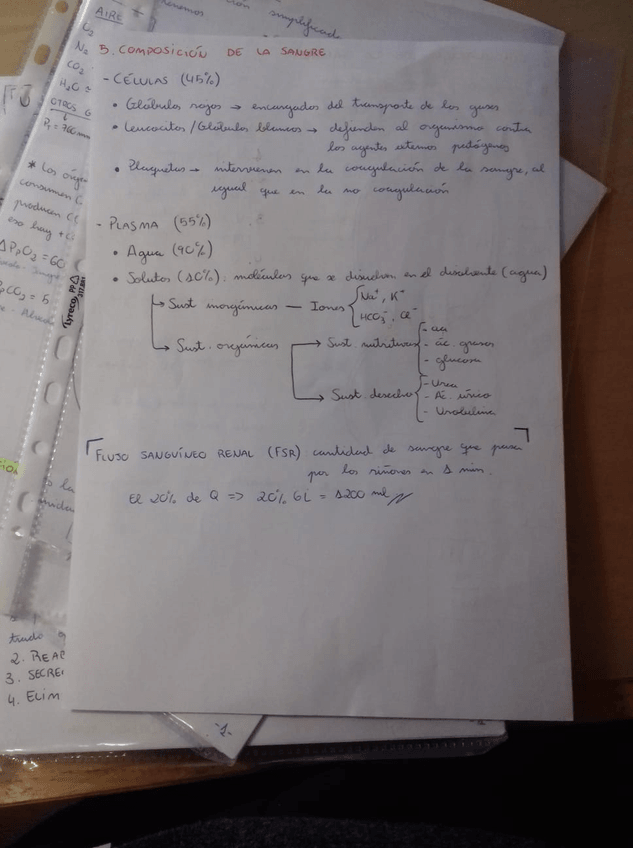 AIRE
N₂
CO₂
H₂O =
OTROS G
P_T = 760 mm
* Los órga
consumen
producen
eso hay
ΔPpO₂ = 60
PCO₂ = 5
Lyreco PP
5. COMPOSICIÓN DE LA SANGRE
- CÉLULAS (45%)
• Glóbulos rojos → encargados del transporte de los gases
• Leucocitos/Glóbulos blancos → defienden al organismo contra
los agentes externos patógenos
• Plaquetas → intervienen en la coagulación de la sangre, al
igual que en la no coagulación
- PLASMA (55%)
• Agua (90%)
• Solutos (10%): moléculas que se disuelven en el disolvente (agua)
→ Sust inorgánicas — Iones { Na⁺, K⁺
HCO₃⁻, Cl⁻
→ Sust. orgánicas → Sust. nutritivas { - aa
- ác. grasos
- glucosa
→ Sust. desecho { - Urea
- Ác. úrico
- Urobilina
FLUJO SANGUÍNEO RENAL (FSR) cantidad de sangre que pasa
por los riñones en 1 min.
El 20% de Q => 20% 6L = 1200 ml
2. REAB
3. SECRE
4. ELIM
-1-